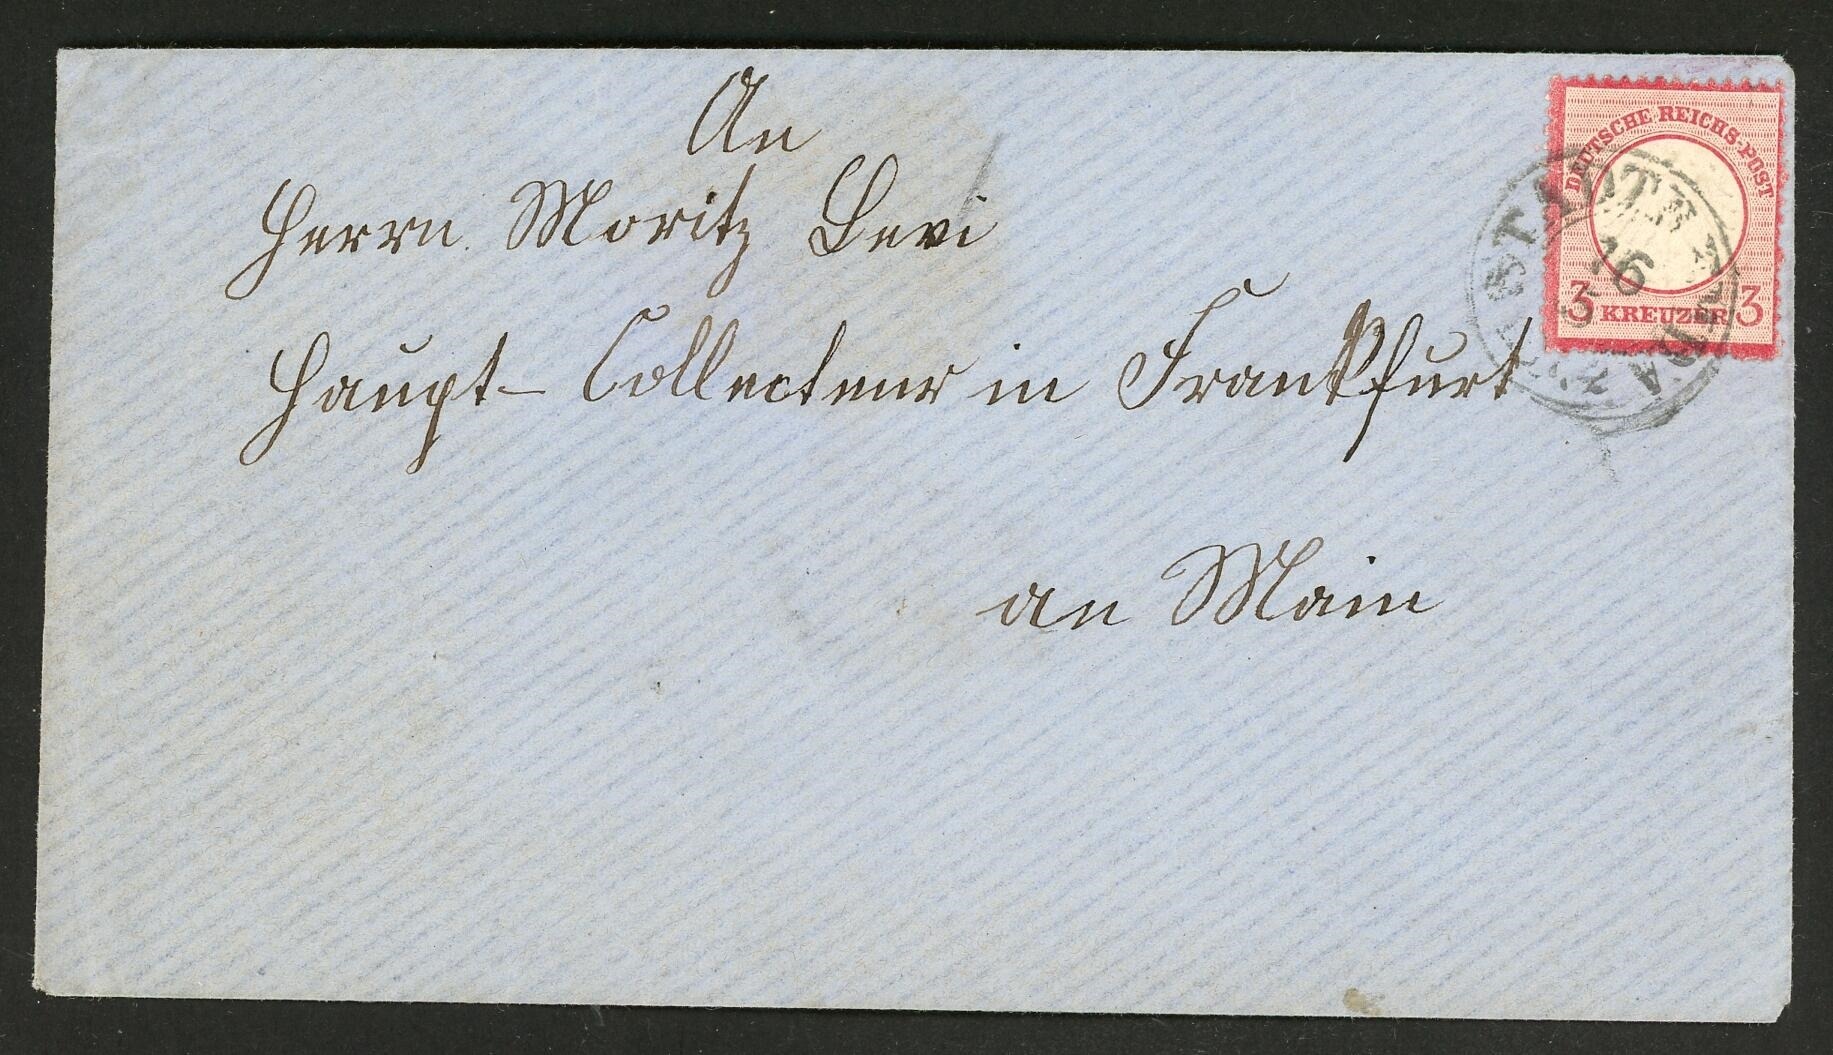 An
Herrn Moritz Levi
Haupt-Collecteur in Frankfurt
an Main
DEUTSCHE REICHS-POST
3 KREUZER 3
16